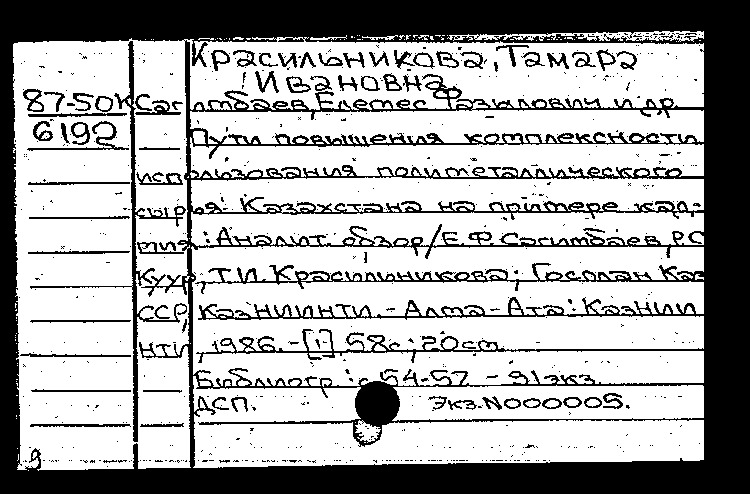 Красильникова, Тамара
Ивановна
87-50К Сагитбаев, Елетес Фазылович и др.
6192 Пути повышения комплексности
использования полиметаллического
сырья Казахстана на примере кад-
мия: Аналит. обзор/Е.Ф Сагитбаев, Р.С
Куур, Т.И. Красильникова; Госплан Каз
ССР, КазНИИНТИ. - Алма-Ата: КазНИИ
НТИ, 1986. - [1], 58с; 20см
Библиогр.: с 54-57 - 91экз.
ДСП. Экз.N000005.
9